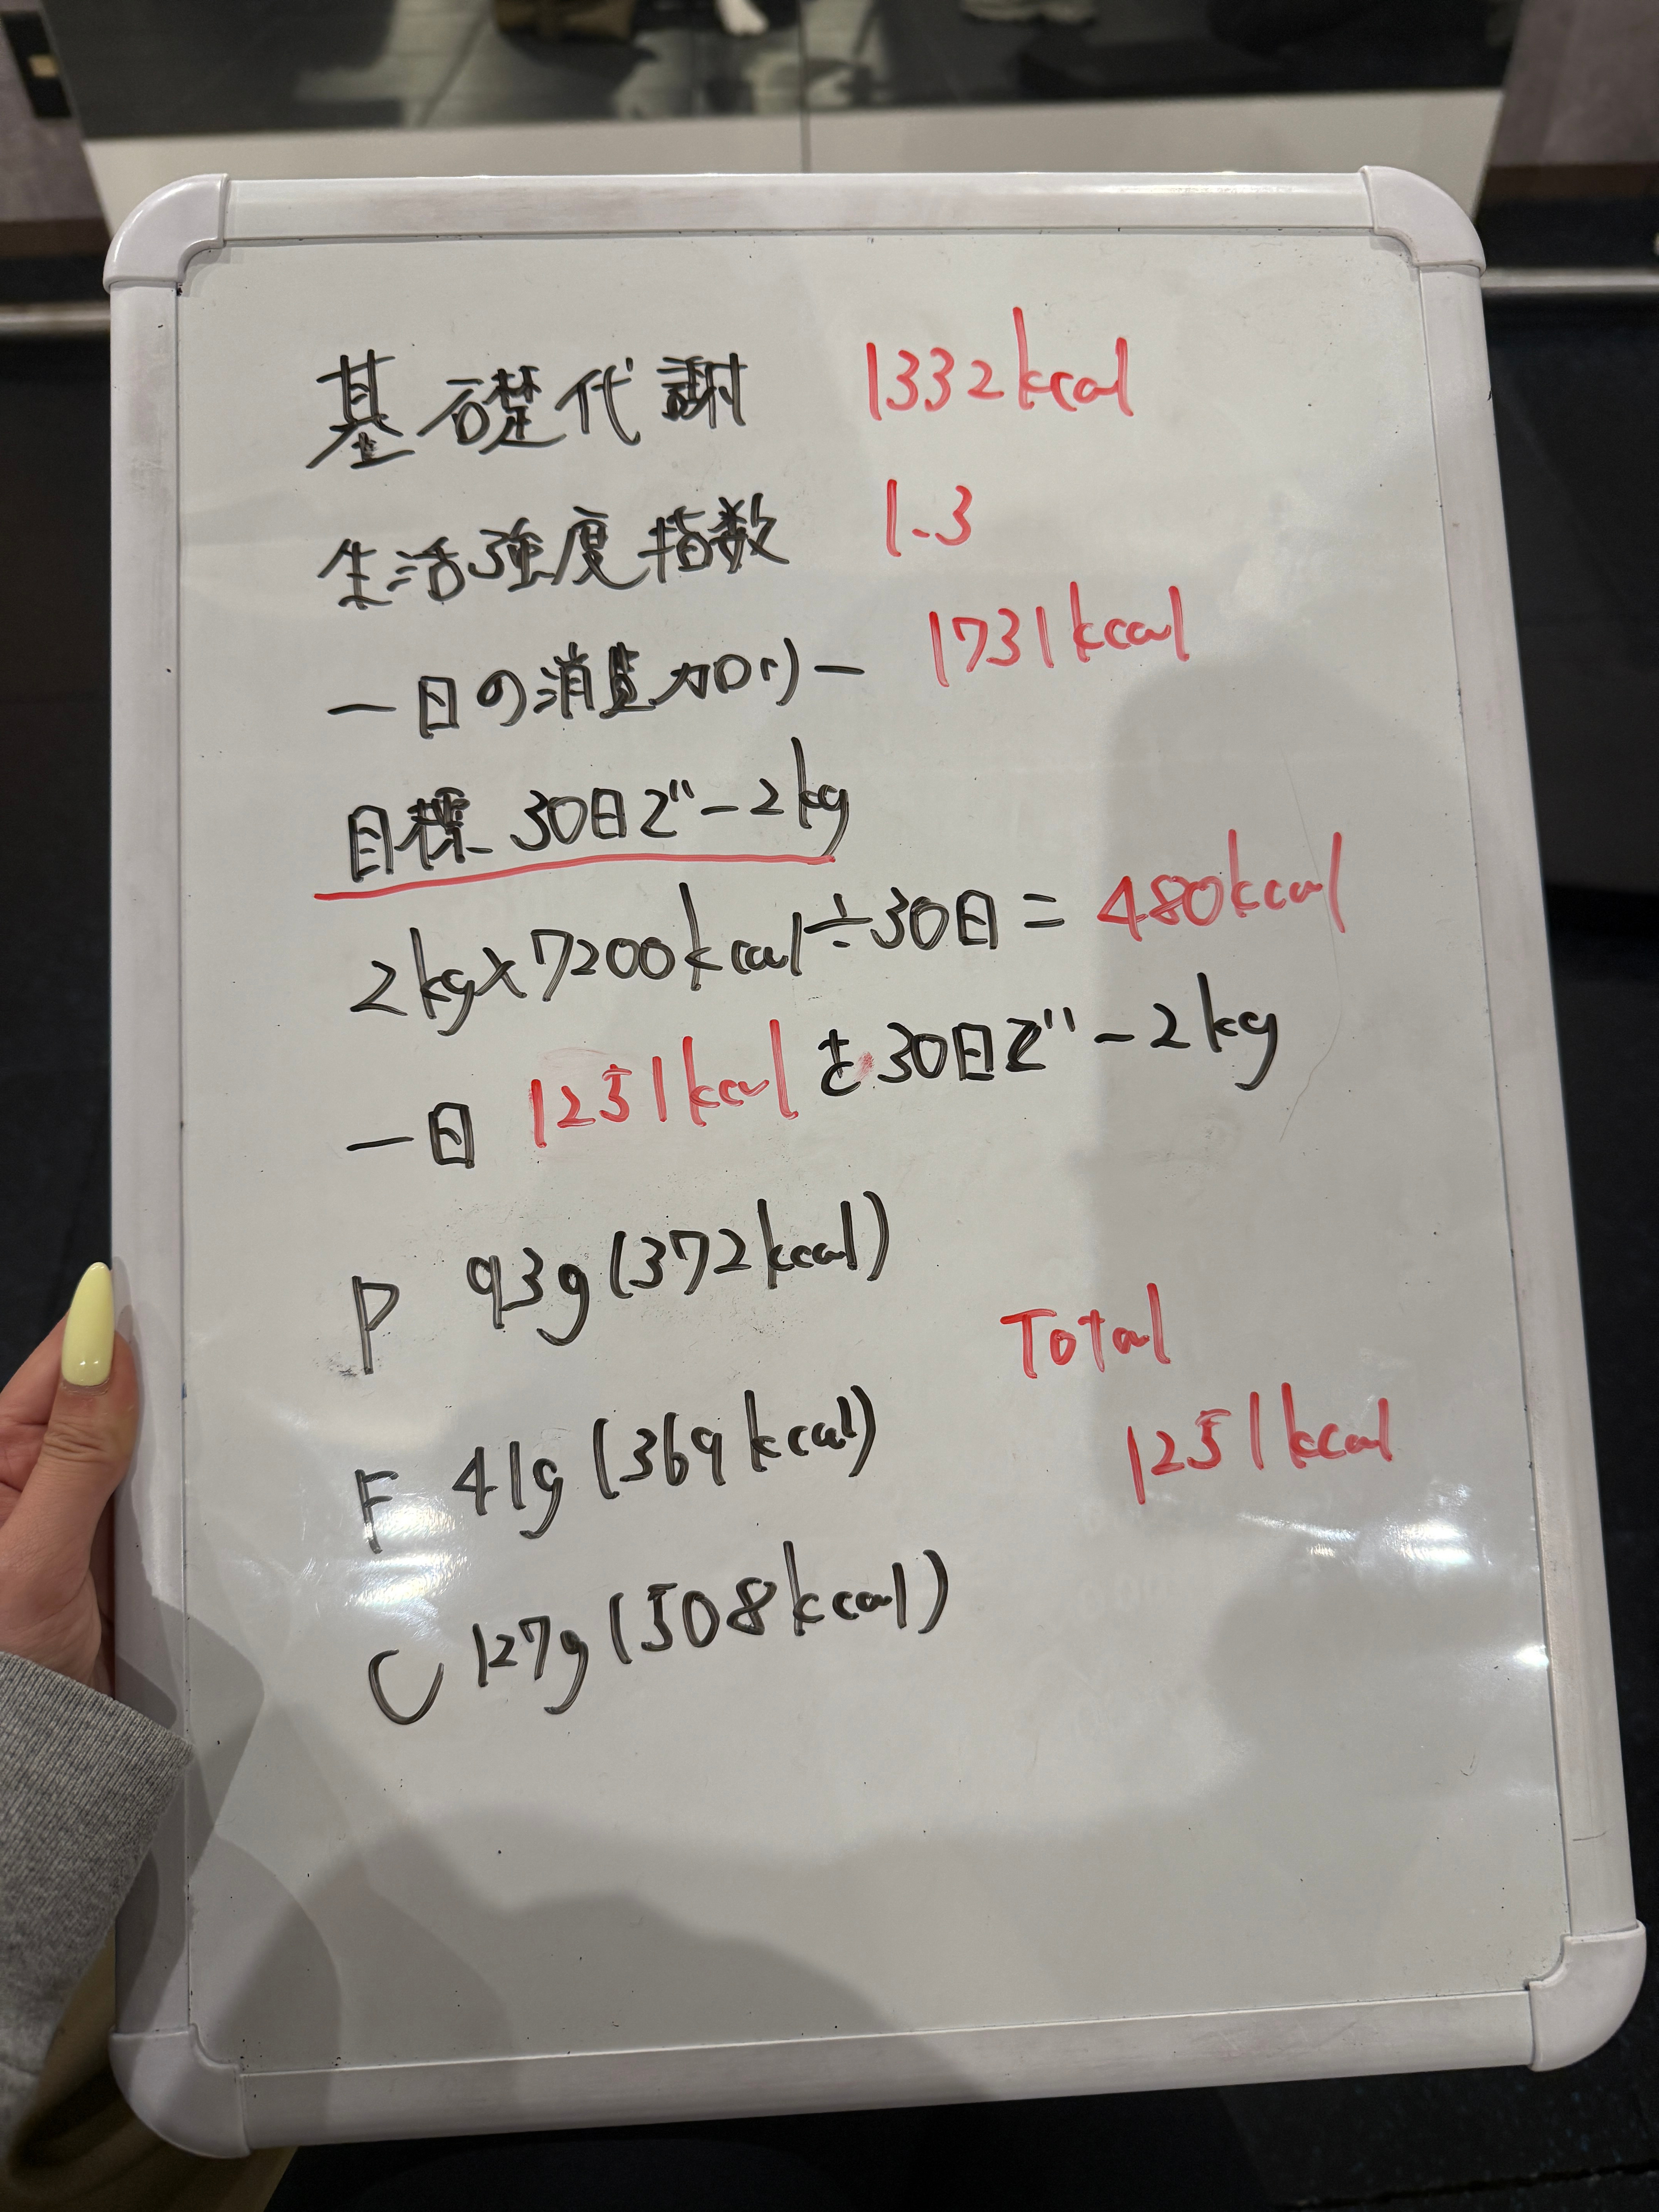 基礎代謝 1332kcal
生活強度指数 1.3
一日の消費カロリー 1731kcal
目標 30日で-2kg
2kg×7200kcal÷30日=480kcal
一日 1251kcalを30日で-2kg
P 93g(372kcal)
Total
F 41g(369kcal)
1251kcal
C 127g(508kcal)